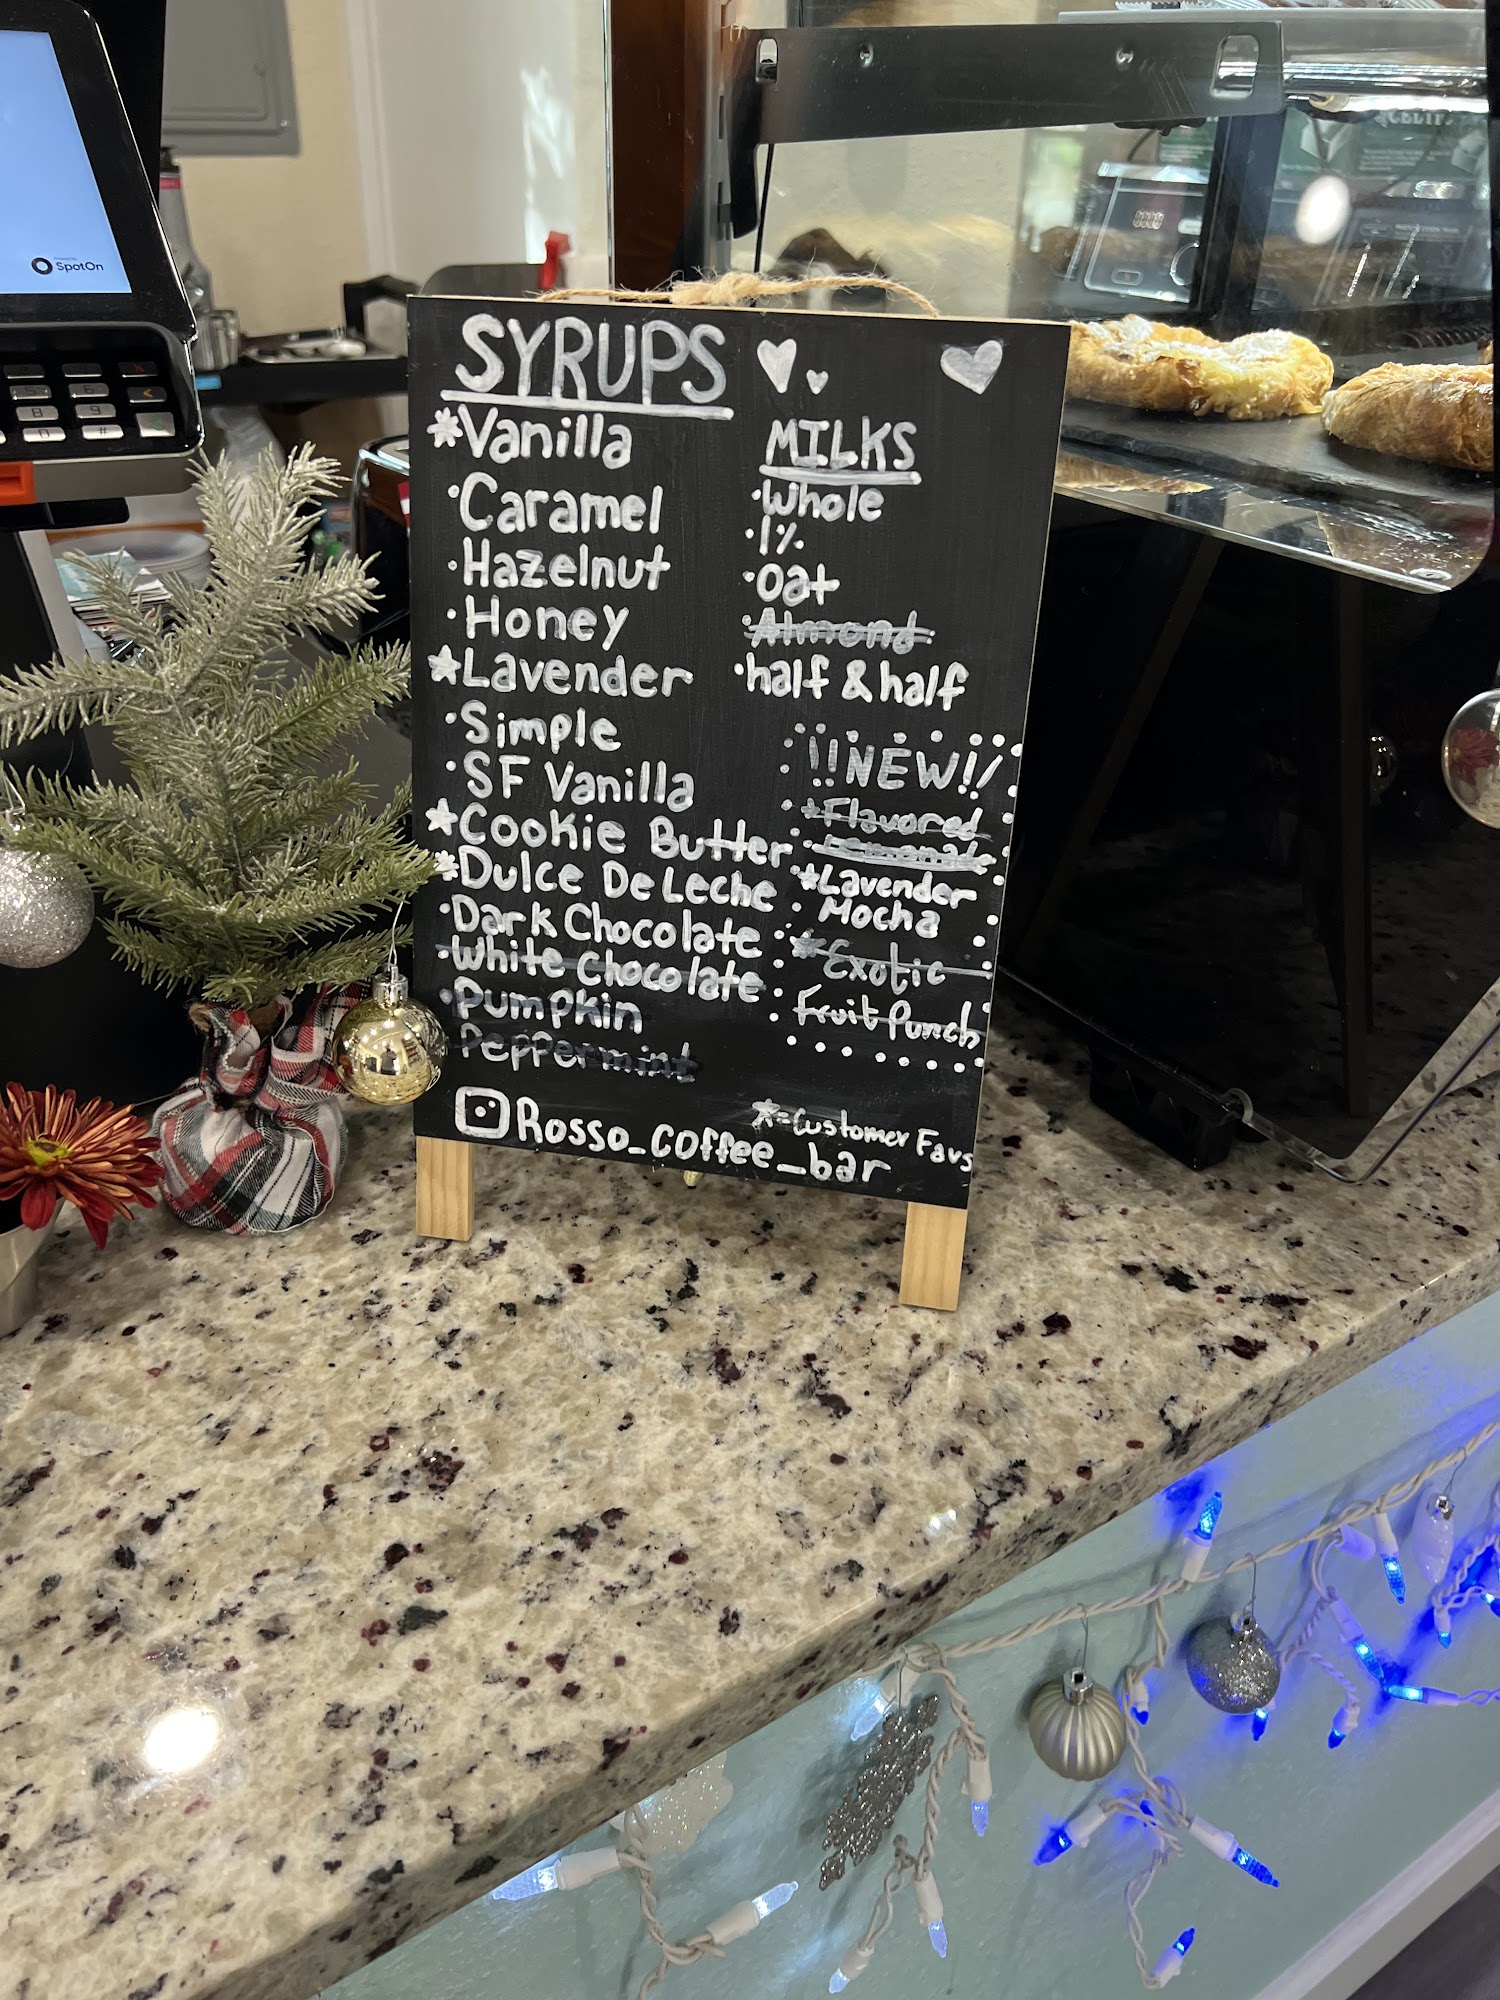 SYRUPS
*Vanilla
·Caramel
·Hazelnut
·Honey
*Lavender
·Simple
·SF Vanilla
*Cookie Butter
*Dulce De Leche
·Dark Chocolate
·White Chocolate
·Pumpkin
Peppermint
MILKS
·Whole
·1%
·Oat
·Almond
·half & half
!!NEW!!
*Flavored
Lemonade
*Lavender
Mocha
*Exotic
Fruit Punch
*=Customer Favs
Rosso_coffee_bar
SpotOn